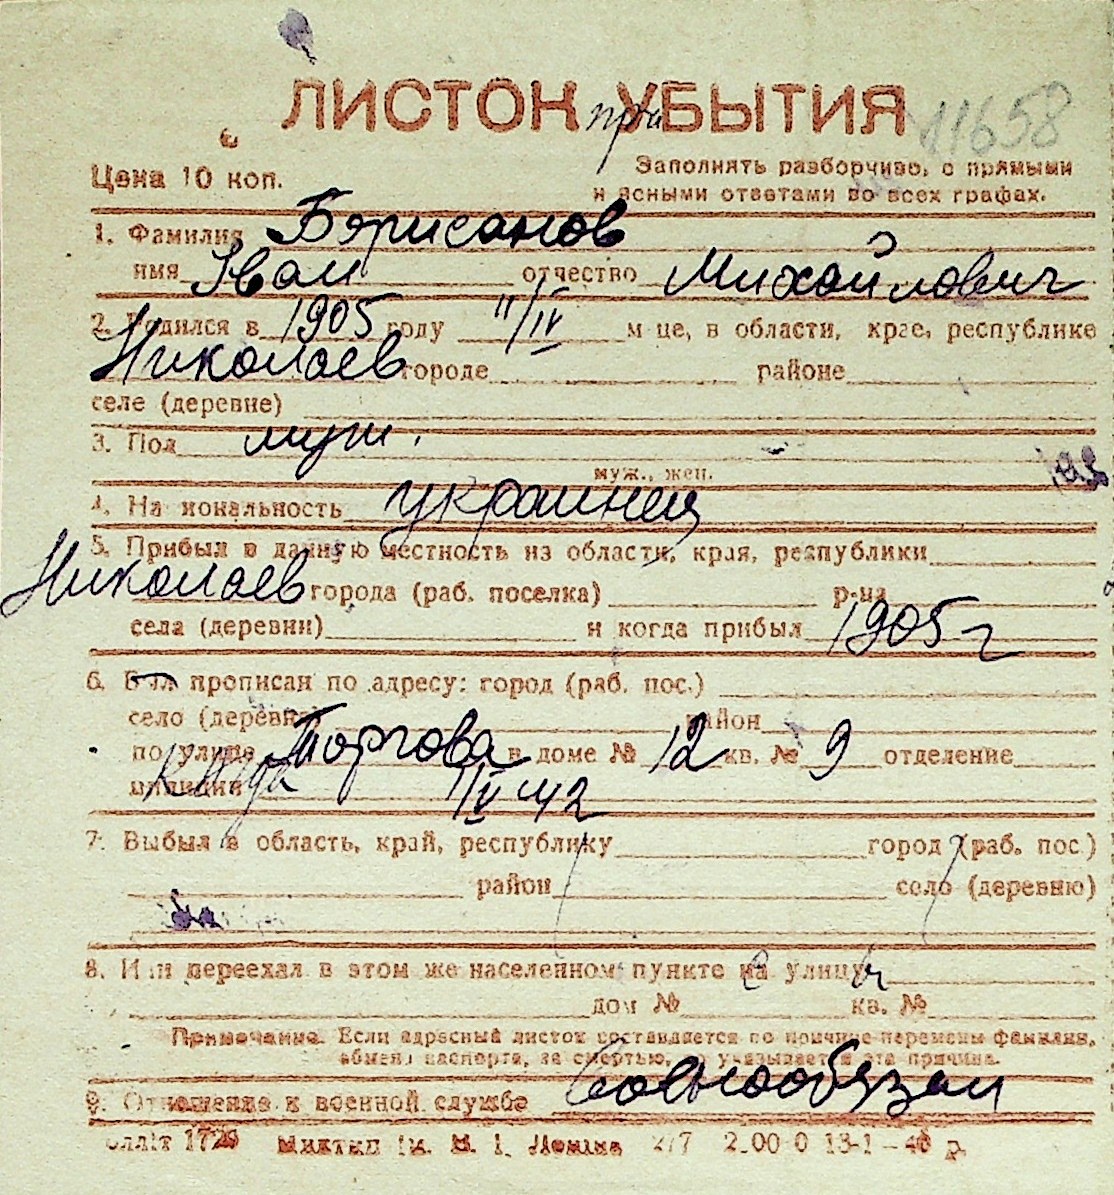 ЛИСТОК при УБЫТИЯ 11658
Цена 10 коп.
Заполнять разборчиво, с прямыми
и ясными ответами во всех графах.
1. Фамилия Борисанов
имя Іван отчество Михайлович
2. Родился в 1905 году 11/IV м-це, в области, крае, республике
Николаев городе районе
селе (деревне)
3. Пол муж.
муж., жен.
4. Национальность украинец
5. Прибыл в данную местность из области, края, республики
Николаев города (раб. поселка) р-на
села (деревни) и когда прибыл 1905 г
6. Был прописан по адресу: город (раб. пос.)
село (деревня) район
по улице Торгова в доме № 12 кв. № 9 отделение
милиции IV 42
7. Выбыл в область, край, республику город (раб. пос.)
район село (деревню)
8. Или переехал в этом же населенном пункте на улицу
дом № кв. №
Примечание. Если адресный листок составляется по причине перемены фамилии,
обмена паспорта, за смертью, то указывается эта причина.
9. Отношение к военной службе
2/7 13-1-